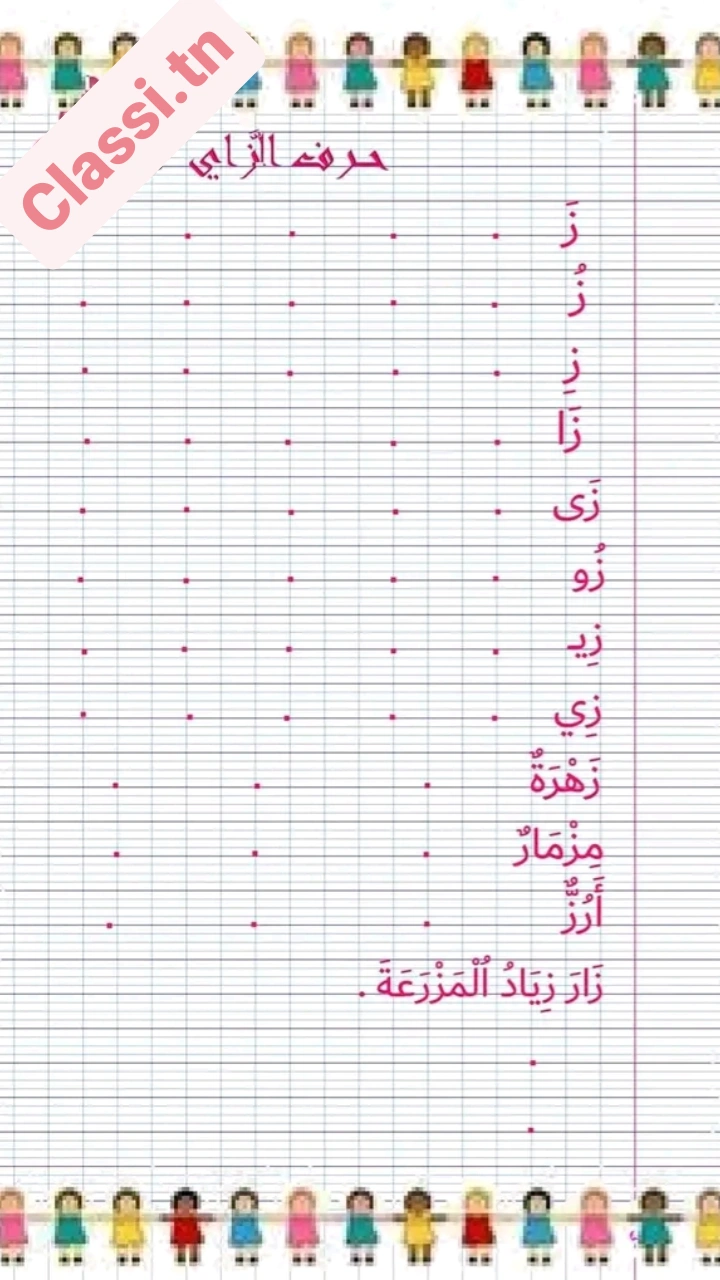 Classi.tn
حرف الزّاي
زَ
زُ
زِ
زَا
زَى
زُو
زِيـ
زِي
زَهْرَةٌ
مِزْمَارٌ
أَرُزٌّ
زَارَ زِيَادُ اُلْمَزْرَعَةَ .